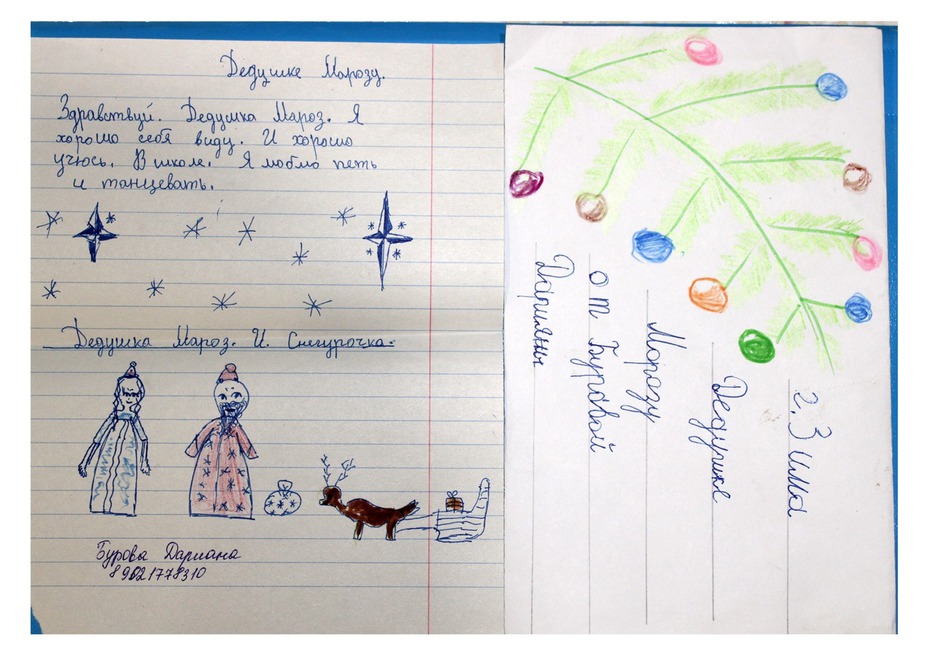 Дедушке Марозу.
Здравствуй. Дедушка Мароз. Я
хорошо себя виду. И хорошо
учюсь. В школе. Я люблю петь
и танцевать.
Дедушка Мароз. И. Снегурочка.
Бурова Дариана
89021778310
г. Зима
Дедушке
Морозу
от Буровой
Дарианы